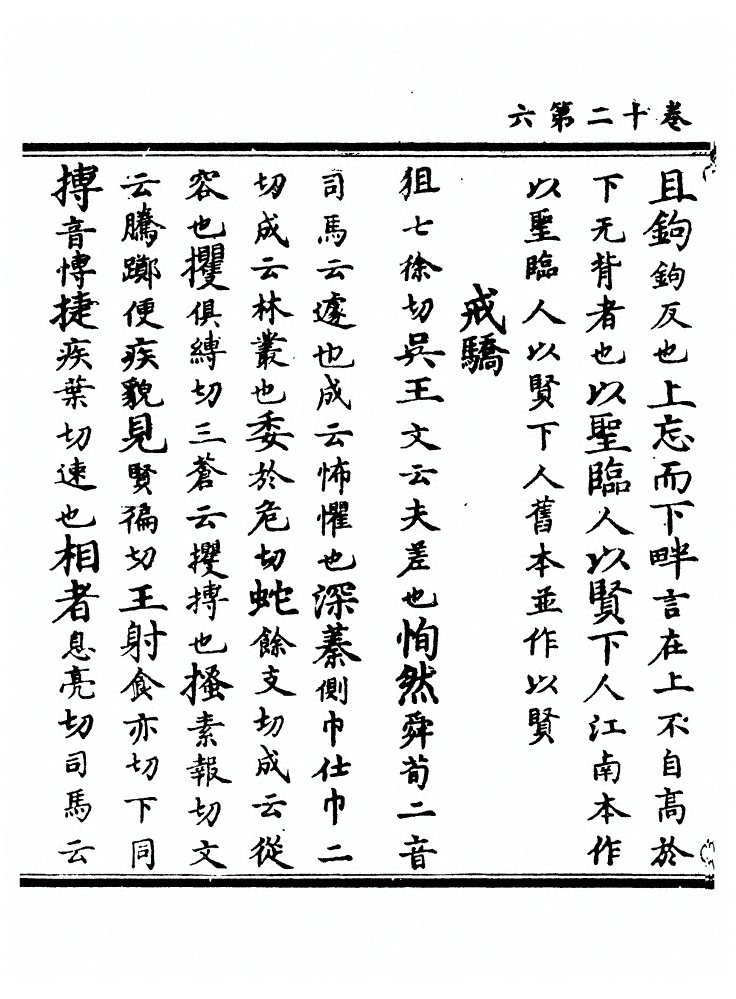 卷十二第六
且鉤鉤反也上忘而下畔言在上不自高於
下无背者也以聖臨人以賢下人江南本作
以聖臨人以賢下人舊本並作以賢
戒驕
狙七徐切吳王文云夫差也恂然舜荀二音
司馬云遽也成云怖懼也深蓁側巾仕巾二
切成云林叢也委於危切蛇餘支切成云從
容也攫俱縛切三蒼云攫搏也搔素報切文
云騰躑便疾貌見賢徧切王射食亦切下同
搏音愽捷疾葉切速也相者息亮切司馬云